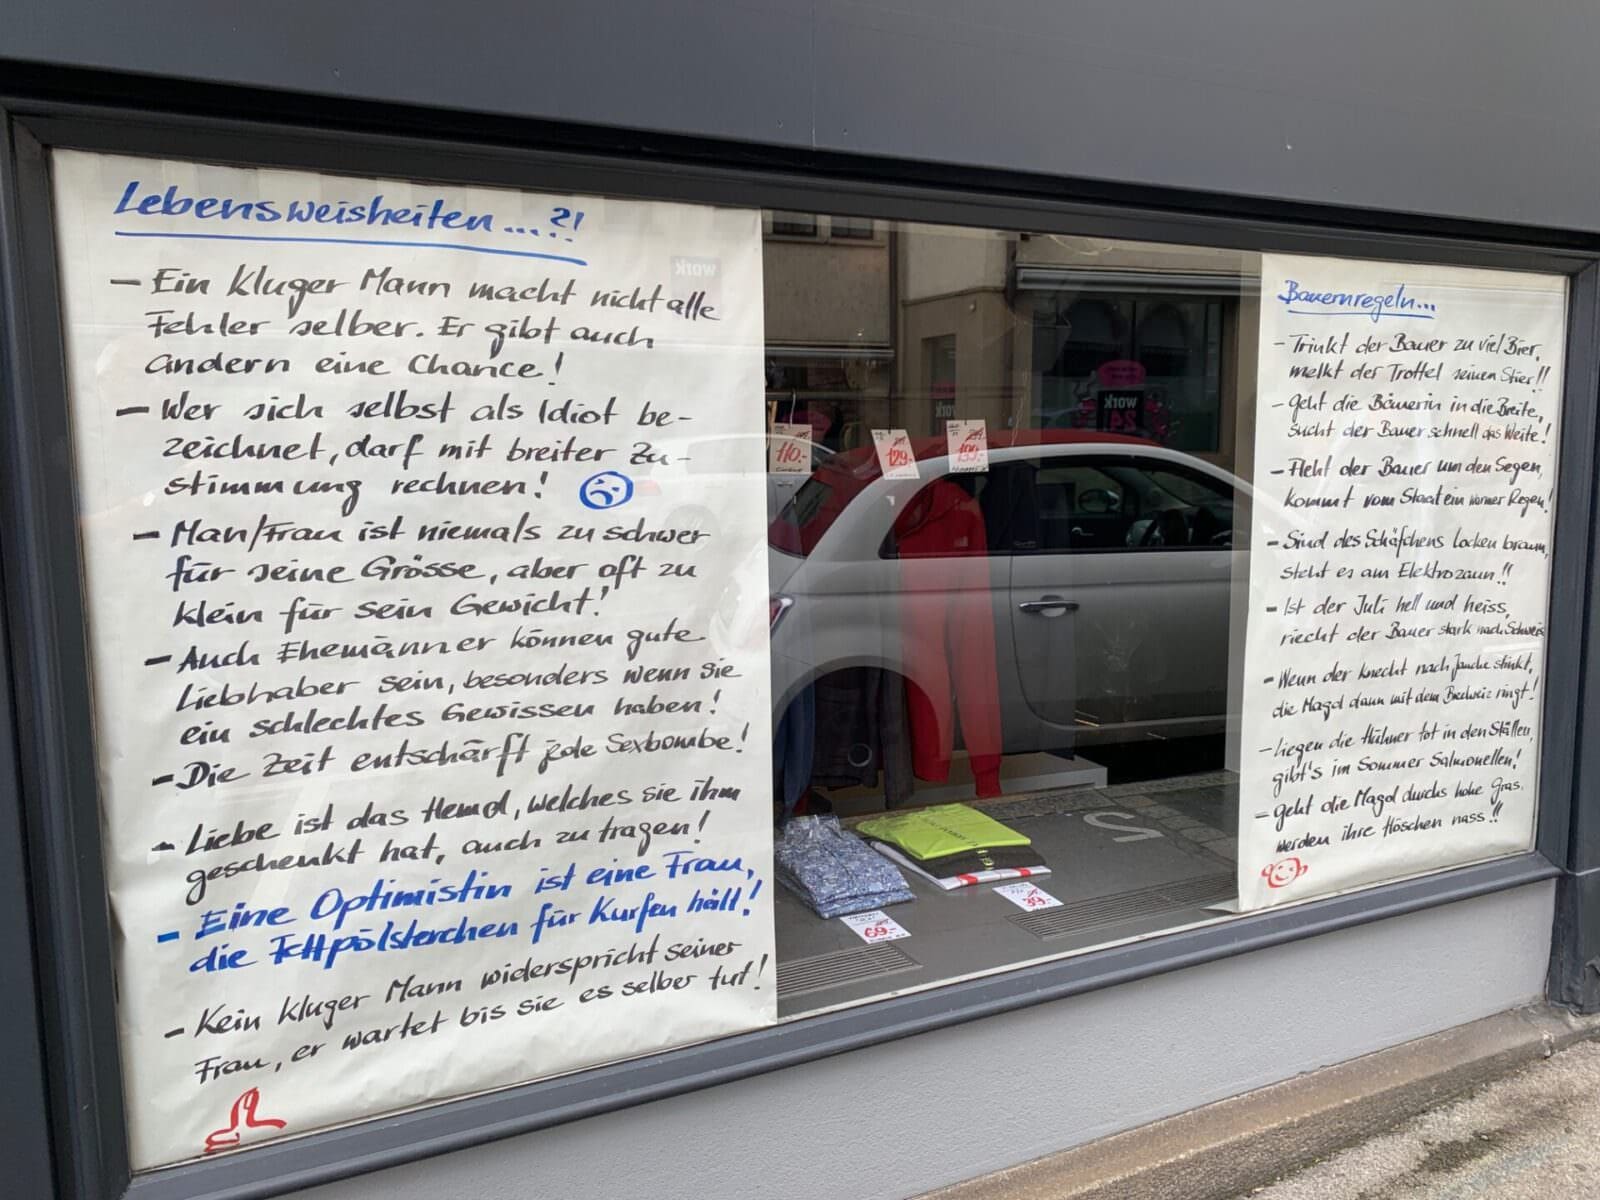 Lebensweisheiten...?!
- Ein kluger Mann macht nicht alle
Fehler selber. Er gibt auch
andern eine Chance!
- Wer sich selbst als Idiot be-
zeichnet, darf mit breiter Zu-
stimmung rechnen!
- Man/Frau ist niemals zu schwer
für seine Grösse, aber oft zu
klein für sein Gewicht!
- Auch Ehemänner können gute
Liebhaber sein, besonders wenn sie
ein schlechtes Gewissen haben!
- Die Zeit entschärft jede Sexbombe!
- Liebe ist das Hemd, welches sie ihm
geschenkt hat, auch zu tragen!
- Eine Optimistin ist eine Frau,
die Fettpölsterchen für Kurfen hält!
- Kein kluger Mann widerspricht seiner
Frau, er wartet bis sie es selber tut!
work
work
work
24
110.-
129.-
199.-
69.-
39.-
Bauernregeln...
- Trinkt der Bauer zu viel Bier,
melkt der Trottel seinen Stier!!
- Geht die Bäuerin in die Breite,
sucht der Bauer schnell das Weite!
- Fleht der Bauer um den Segen,
kommt vom Staat ein warmer Regen!
- Sind des Schäfchens Locken braun,
steht es am Elektrozaun!!
- Ist der Juli hell und heiss,
riecht der Bauer stark nach Schweiss
- Wenn der Knecht nach Jauche stinkt,
die Magd dann mit dem Brechreiz ringt!
- Liegen die Hühner tot in den Ställen,
gibt's im Sommer Salmonellen!
- Geht die Magd durchs hohe Gras,
werden ihre Höschen nass!!